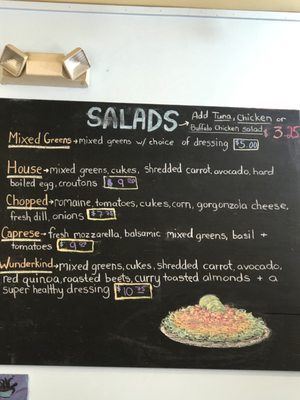 SALADS → Add Tuna, Chicken or
Buffalo Chicken salad $3.25
Mixed Greens → mixed greens w/ choice of dressing $5.00
House → mixed greens, cukes, shredded carrot, avocado, hard
boiled egg, croutons $9.00
Chopped → romaine, tomatoes, cukes, corn, gorgonzola cheese,
fresh dill, onions $7.75
Caprese → fresh mozzarella, balsamic mixed greens, basil +
tomatoes $9.00
Wunderkind → mixed greens, cukes, shredded carrot, avocado,
red quinoa, roasted beets, curry toasted almonds + a
super healthy dressing $10.75